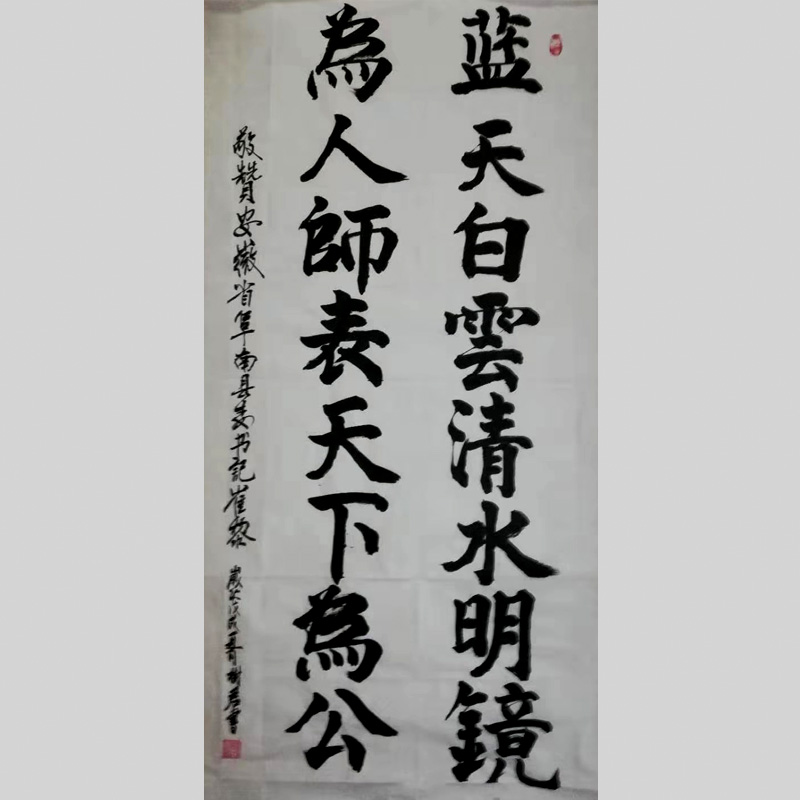 蓝天白雲清水明鏡
為人師表天下為公
敬贊安徽省阜南县委书記崔黎 歲次戊戌春月樹君書